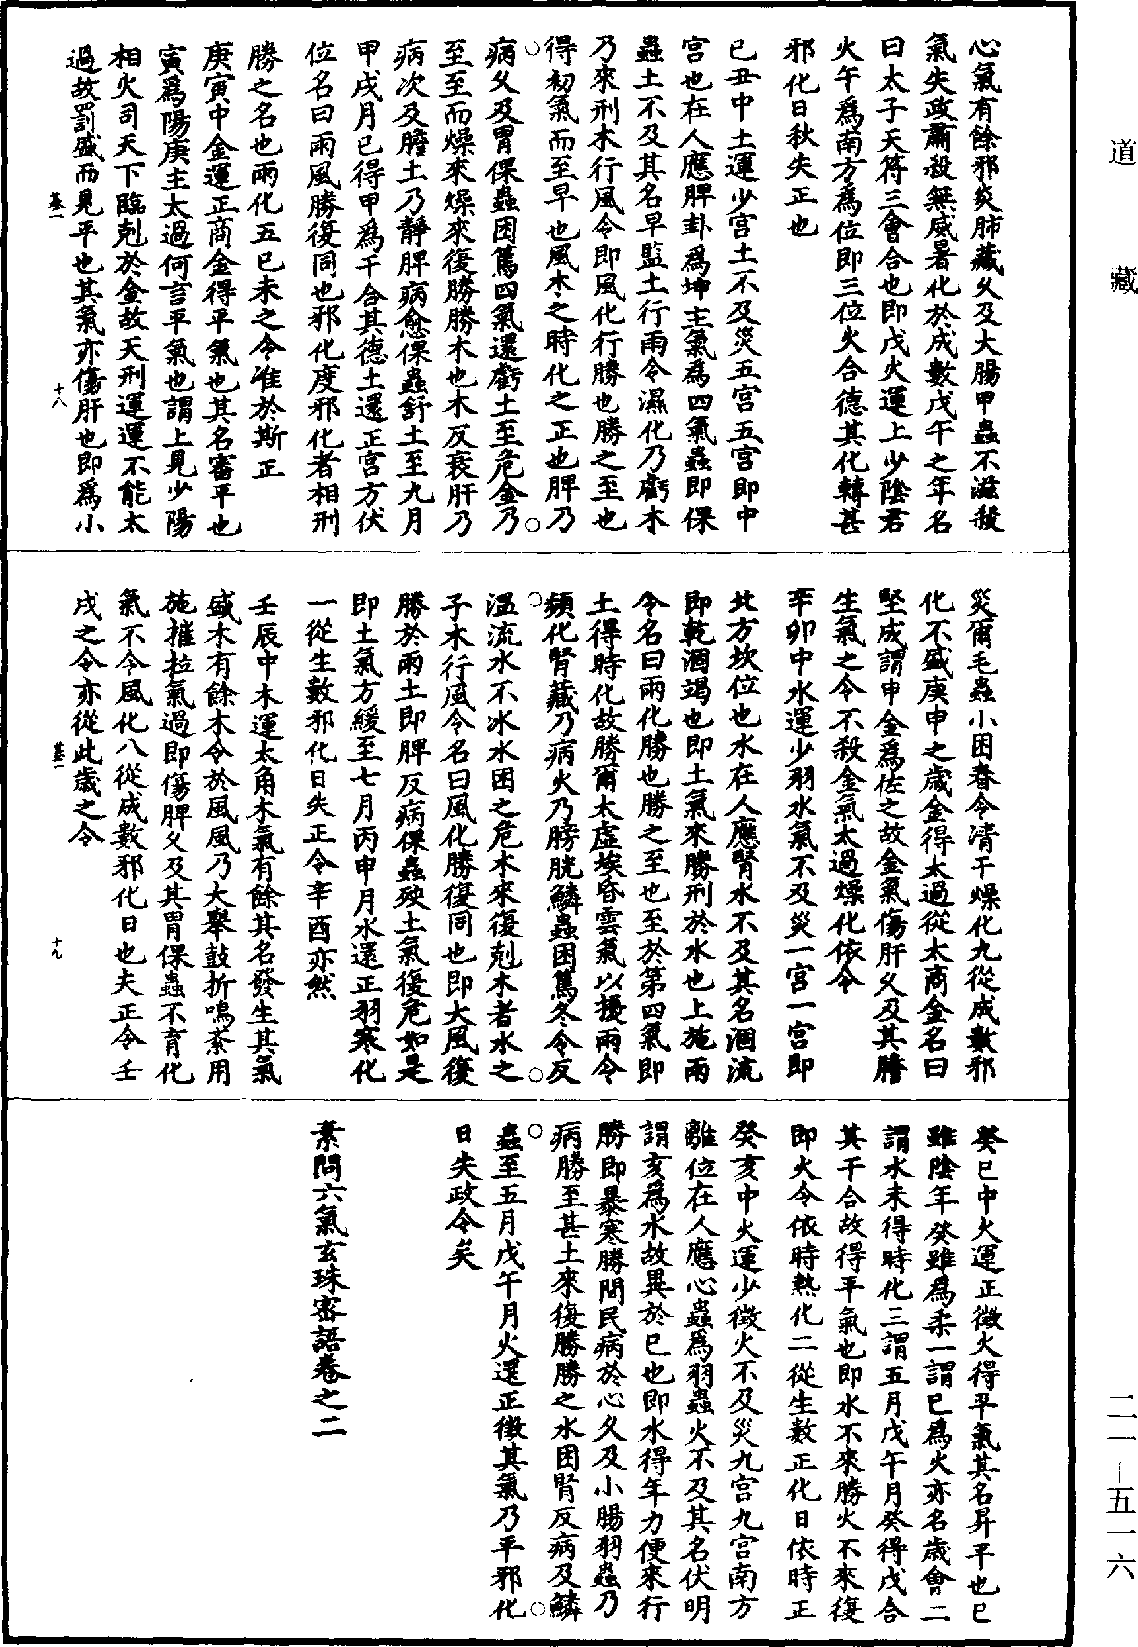 道藏
心氣有餘邪炎肺藏久及大腸甲蟲不滋殺
氣失政肅殺無威暑化於成數戊午之年名
曰太子天符三會合也即戊火運上少陰君
火午為南方為位即三位火合德其化轉甚
邪化日秋失正也
己丑中土運少宮土不及災五宮五宮即中
宮也在人應脾卦為坤主氣為四氣蟲即倮
蟲土不及其名早監土行雨令濕化乃虧木
乃來刑木行風令即風化行勝也勝之至也
得初氣而至早也風木之時化之正也脾乃
病久及胃倮蟲困篤四氣還虧土至危金乃
至至而燥來燥來復勝勝木也木反衰肝乃
病次及膽土乃靜脾病愈倮蟲舒土至九月
甲戌月已得甲為干合其德土還正宮方伏
位名曰雨風勝復同也邪化度邪化者相刑
勝之名也雨化五已未之令准於斯正
庚寅中金運正商金得平氣也其名審平也
寅為陽庚主太過何言平氣也謂上見少陽
相火司天下臨剋於金故天刑運運不能太
過故罰盛而見平也其氣亦傷肝也即為小
基一
十八
災爾毛蟲小困春令清干燥化九從成數邪
化不盛庚申之歲金得太過從太商金名曰
堅成謂申金為佐之故金氣傷肝久及其膽
生氣之令不殺金氣太過燥化依令
辛卯中水運少羽水氣不及災一宮一宮即
北方坎位也水在人應腎水不及其名涸流
即乾涸竭也即土氣來勝刑於水也上施雨
令名曰雨化勝也勝之至也至於第四氣即
土得時化故勝爾太虛埃昏雲氣以擾雨令
頻化腎藏乃病火乃膀胱鱗蟲困篤冬令反
溫流水不冰水困之危木來復剋木者水之
子木行風令名曰風化勝復同也即大風復
勝於雨土即脾反病倮蟲殃土氣復危如是
即土氣方緩至七月丙申月水還正羽寒化
一從生數邪化日失正令辛酉亦然
壬辰中木運太角木氣有餘其名發生其氣
盛木有餘木令於風風乃大舉鼓折鳴紊用
施摧拉氣過即傷脾久及其胃倮蟲不育化
氣不令風化八從成數邪化日也夫正令壬
戌之令亦從此歲之令
基一
十九
癸巳中火運正徵火得平氣其名昇平也巳
雖陰年癸雖為柔一謂巳為火亦名歲會二
謂水未得時化三謂五月戊午月癸得戊合
其干合故得平氣也即水不來勝火不來復
即火令依時熱化二從生數正化日依時正
癸亥中火運少徵火不及災九宮九宮南方
離位在人應心蟲為羽蟲火不及其名伏明
謂亥為水故異於巳也即水得年力便來行
勝即暴寒勝間民病於心久及小腸羽蟲乃
病勝至甚土來復勝勝之水困腎反病及鱗
蟲至五月戊午月火還正徵其氣乃平邪化
日失政令矣
素問六氣玄珠密語卷之二
二一—五一六